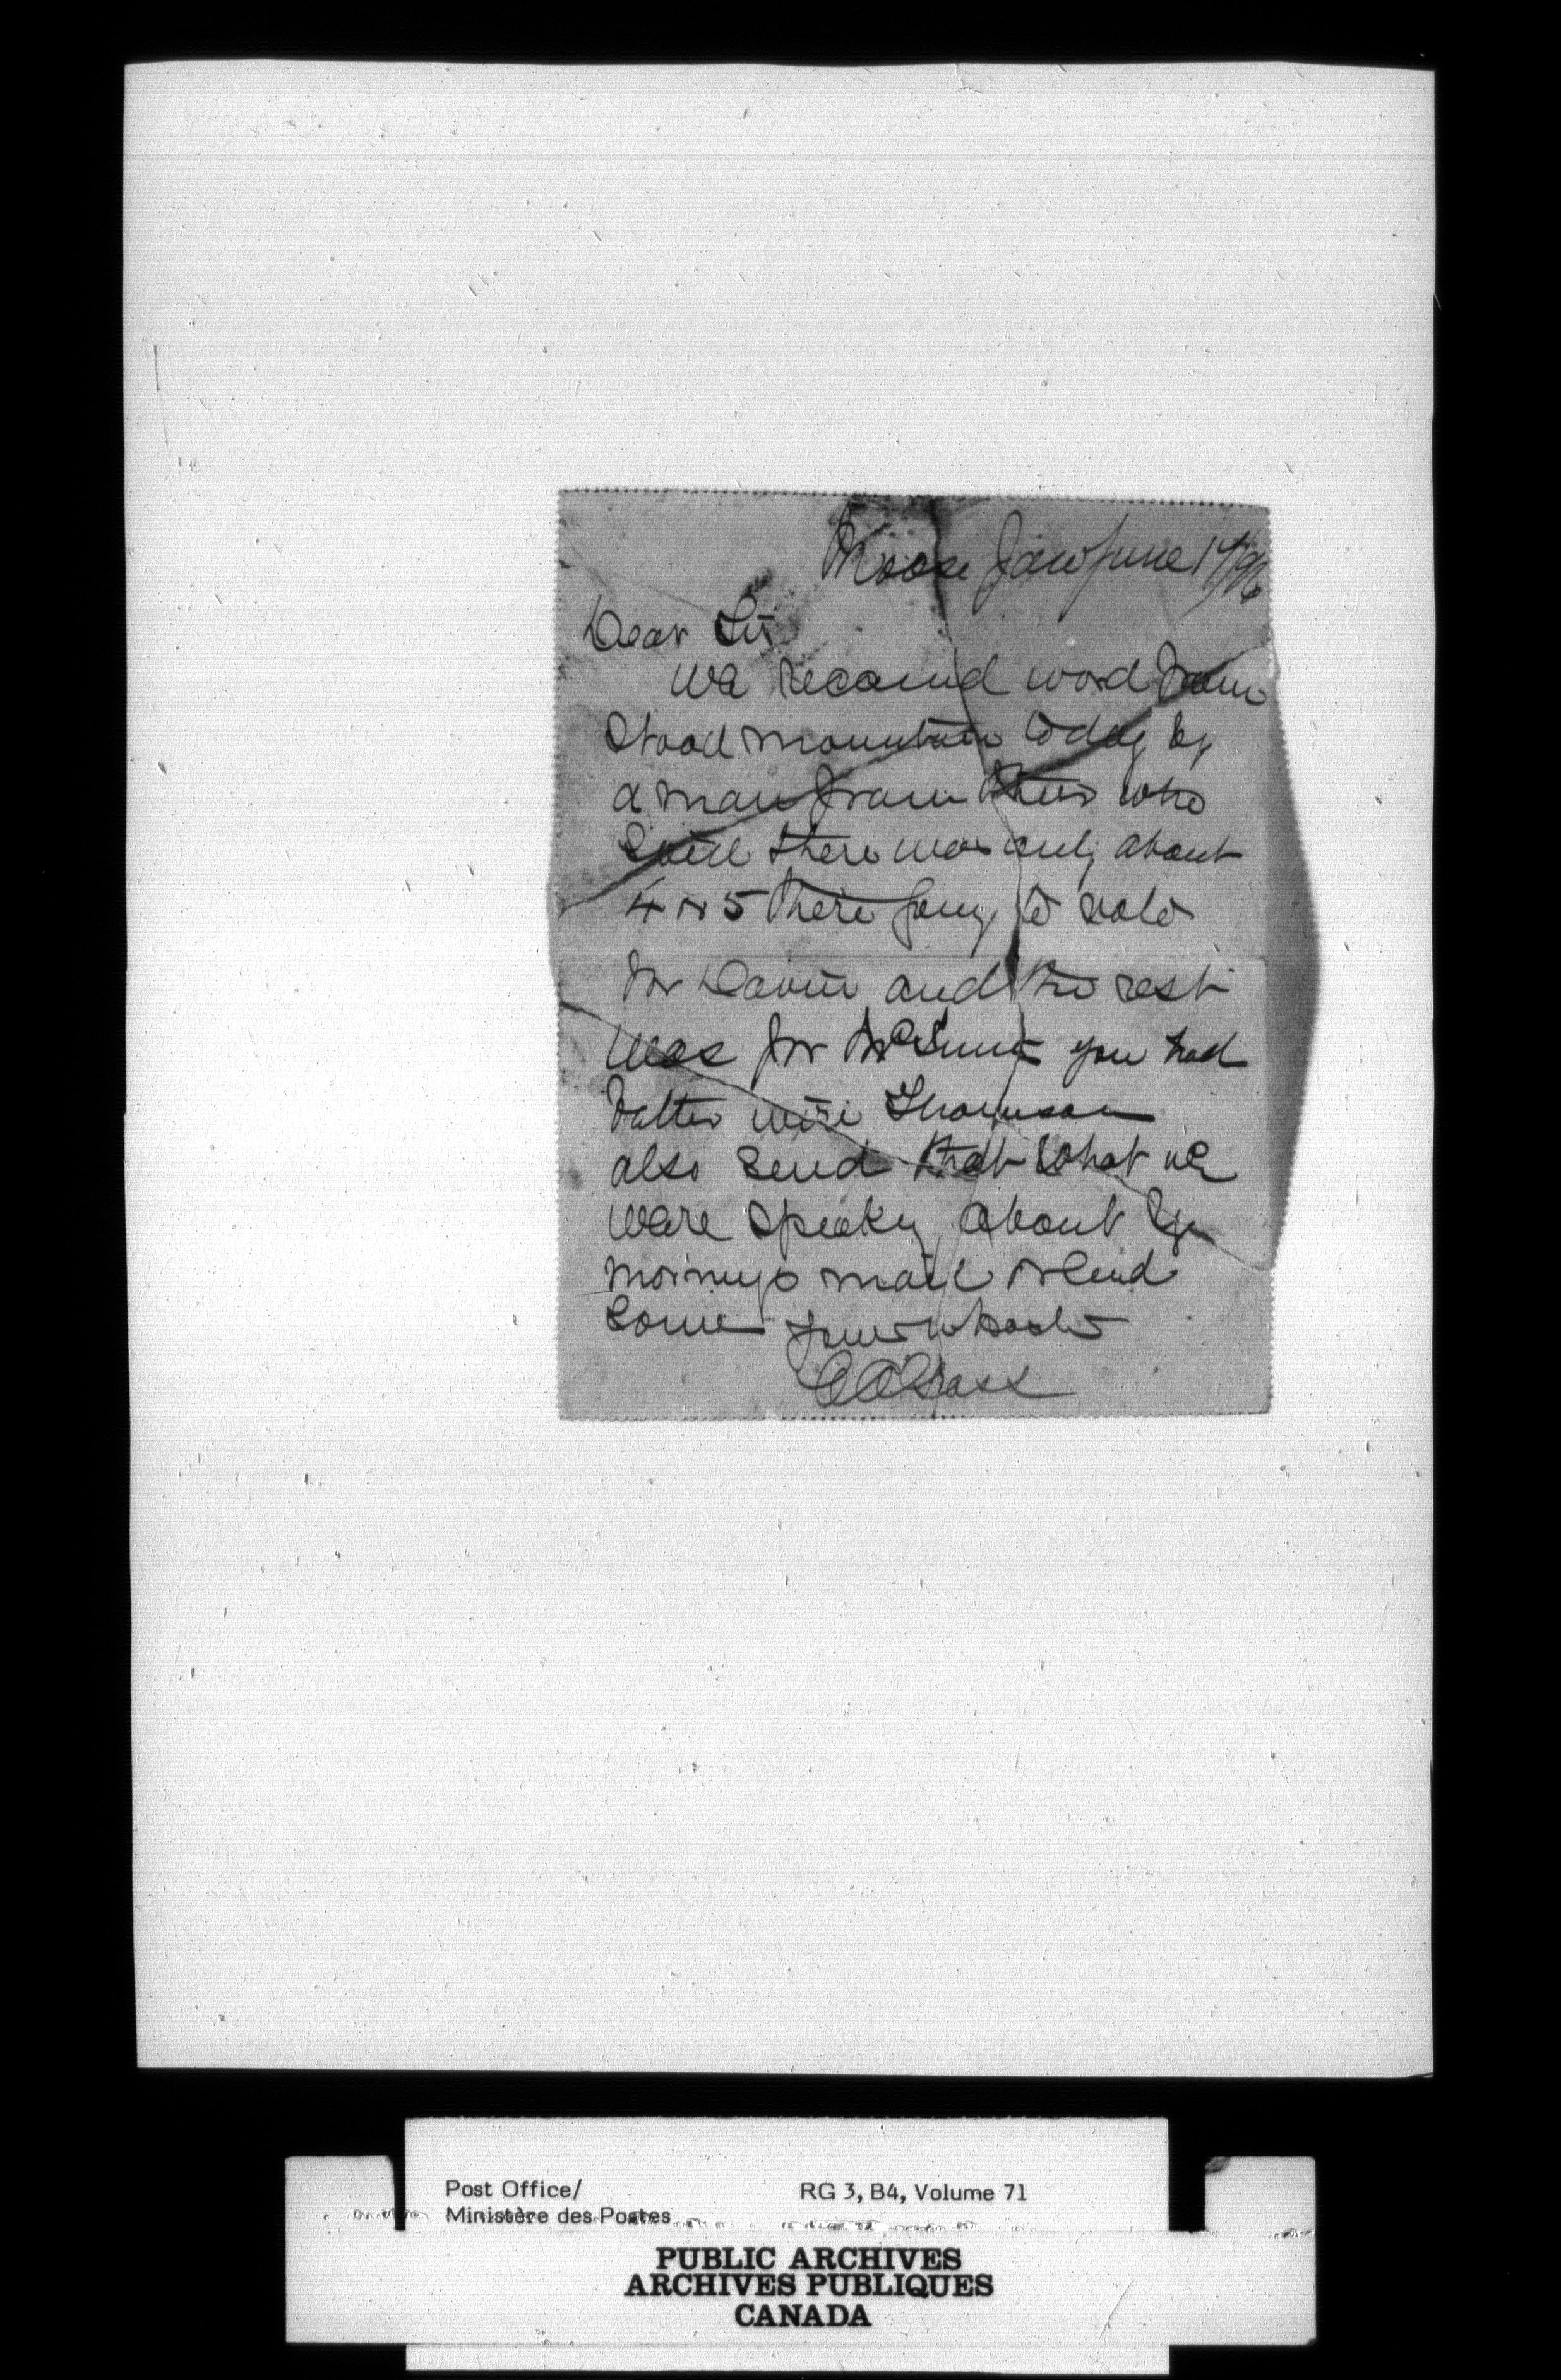 Moose Jaw June 17/96
Dear Sir
We received word from
Wood mountain today by
a man from there who
said there was only about
4 or 5 there going to vote
for Davin and the rest
was for McInnis you had
better wire Thomson
also send that what we
were speaking about by
mornings mail & send
some
Post Office/ RG 3, B4, Volume 71
Ministère des Postes
PUBLIC ARCHIVES
ARCHIVES PUBLIQUES
CANADA